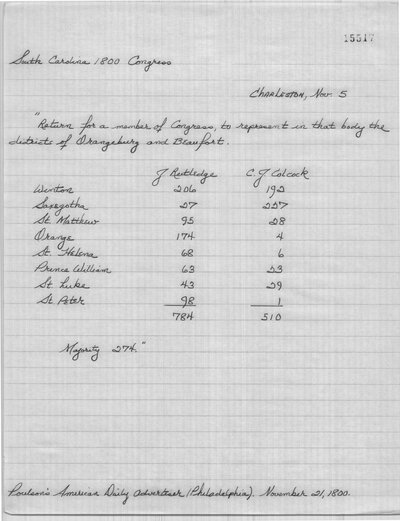 15517
South Carolina 1800 Congress
Charleston, Nov. 5
"Return for a member of Congress, to represent in that body the
districts of Orangeburg and Beaufort.
J Rutledge C. J Colcock
Winton 206 192
Saxegotha 27 227
St. Matthew 95 28
Orange 174 4
St. Helena 68 6
Prince William 63 23
St. Luke 43 29
St. Peter 98 1
784 510
Majority 274."
Poulson's American Daily Advertiser (Philadelphia). November 21, 1800.